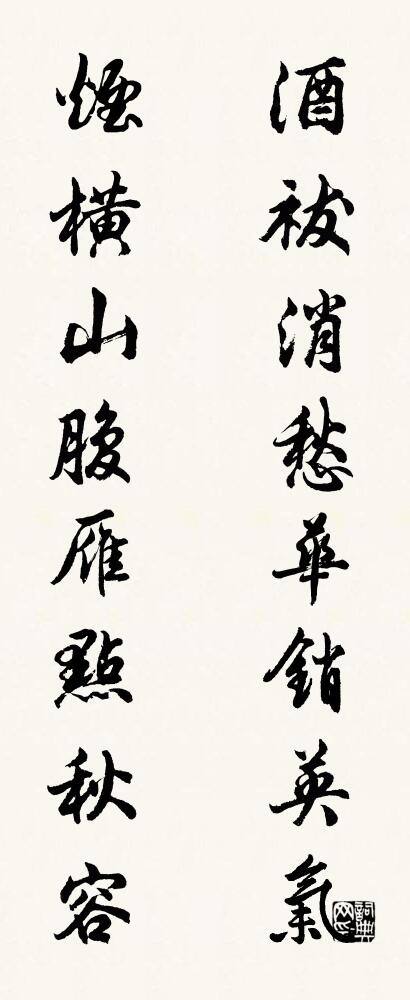 酒祓消愁華銷英氣
煙橫山腹雁點秋容
詞典網